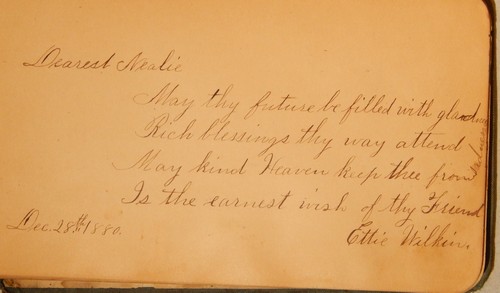 Dearest Nealie
May thy future be filled with gladness
Rich blessings thy way attend
May kind Heaven keep thee from sadness
Is the earnest wish of thy Friend
Dec. 28th 1880. Ettie Wilkin.